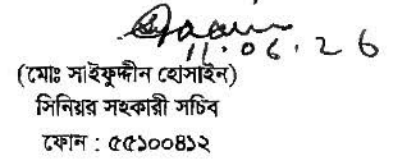 11.06.26
(মোঃ সাইফুদ্দীন হোসাইন)
সিনিয়র সহকারী সচিব
ফোন : ৫৫১০০৪১২